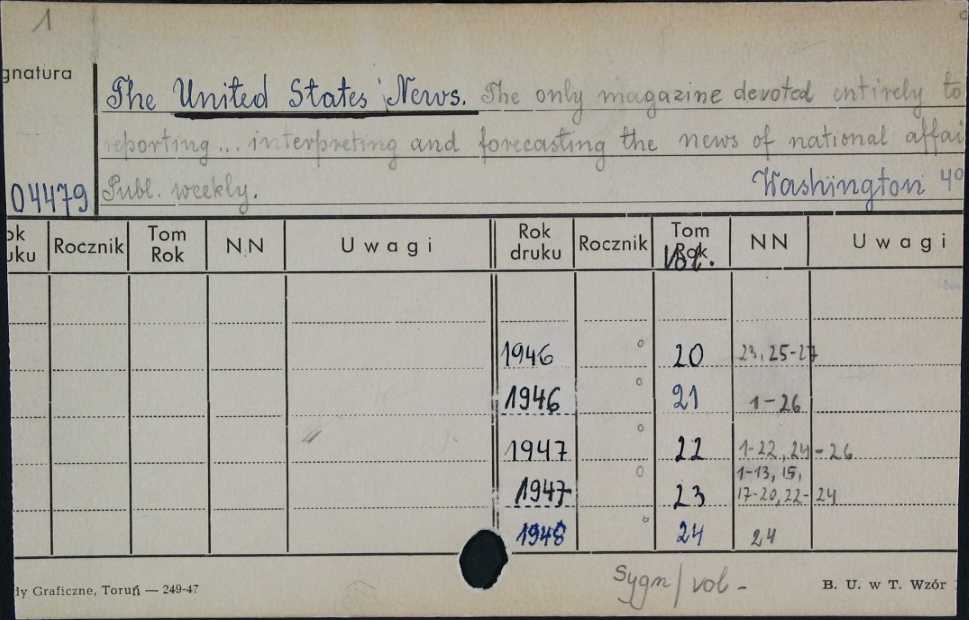 1
gnatura
The United States News. The only magazine devoted entirely to
reporting... interpreting and forecasting the news of national affai
04479 Publ. weekly. Washington 4º
ok uku Rocznik Tom Rok NN Uwagi Rok druku Rocznik Tom Rok Vol. NN Uwagi
1946 º 20 23, 25-27
1946 º 21 1-26
1947 º 22 1-22, 24-26
1947 º 23 1-13, 15, 17-20, 22-24
1948 º 24 24
Sygn/vol-
dy Graficzne, Toruń — 249-47 B. U. w T. Wzór